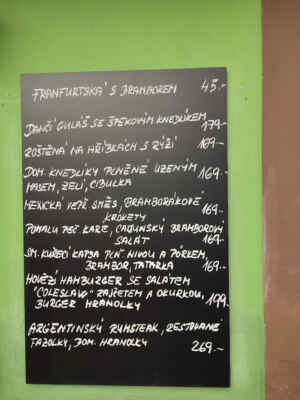 FRANFURTSKÁ S BRAMBOREM 45.-
DANČÍ GULÁŠ SE ŠPEKOVÝM KNEDLÍKEM 179.-
ROŠTĚNÁ NA HŘIBKÁCH S RÝŽÍ 189.-
DOM. KNEDLÍKY PLNĚNÉ UZENÝM 169.-
MASEM, ZELÍ, CIBULKA
MEXICKÁ VEPŘ. SMĚS, BRAMBORÁKOVÉ
KROKETY 169.-
POMALU PEČ. KARE, CAJUNSKÝ BRAMBOROVÝ
SALÁT 169.-
SM. KUŘECÍ KAPSA PLN. NIVOU A PÓRKEM,
BRAMBOR, TATARKA 169.-
HOVĚZÍ HAMBURGER SE SALÁTEM
"COLESLAW" RAJČETEM A OKURKOU, 199.-
BURGER HRANOLKY
ARGENTINSKÝ RUMSTEAK, RESTOVANÉ
FAZOLKY, DOM. HRANOLKY
269.-